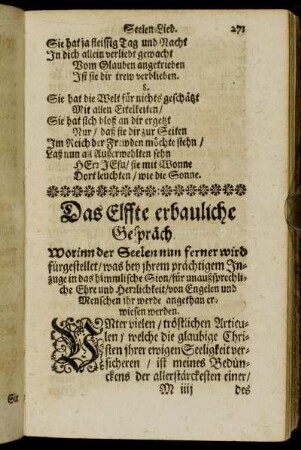 Seelen-Lied. 271
Sie hat ja fleissig Tag und Nacht
In dich allein verliebt gewacht
Vom Glauben angetrieben
Ist sie dir trew verblieben.
8.
Sie hat die Welt für nichts geschätzt
Mit allen Eitelkeiten /
Sie hat sich bloß an dir ergetzt
Nur / daß sie dir zur Seiten
Im Reich der Frewden möchte stehn /
Laß nun all Außerwehlten sehn
HErr JEsu / sie mit Wonne
Dort leuchten / wie die Sonne.
Das Elffte erbauliche
Gespräch
Worinn der Seelen nun ferner wird
fürgestellet / was bey jhrem prächtigem In-
zuge in das himmlische Sion / für unaussprechli-
che Ehre und Herrlichkeit / von Engelen und
Menschen jhr werde angethan er-
wiesen werden.
UNter vielen / tröstlichen Articu-
len / welche die glaubige Chri-
sten jhrer ewigen Seeligkeit ver-
sicheren / ist meines Bedün-
ckens der allerstärckesten einer /
M iiij des